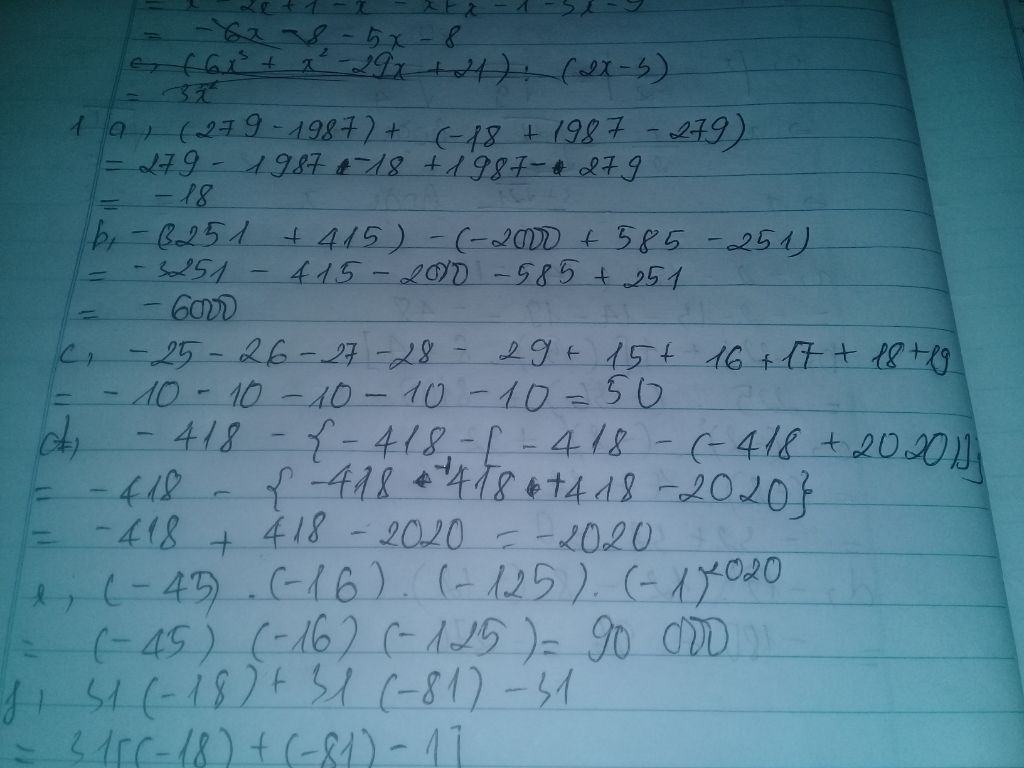 = - 6x - 8 - 5x - 8
c, (6x³ + x² - 29x + 21) : (2x - 3)
= 3x²
1 a, (279 - 1987) + (-18 + 1987 - 279)
= 279 - 1987 - 18 + 1987 - 279
= -18
b, -(3251 + 415) - (-2000 + 585 - 251)
= -3251 - 415 - 2000 - 585 + 251
= -6000
c, -25 - 26 - 27 - 28 - 29 + 15 + 16 + 17 + 18 + 19
= -10 - 10 - 10 - 10 - 10 = 50
d, -418 - { -418 - [ -418 - (-418 + 2020)]}
= -418 - { -418 + 418 + 418 - 2020}
= -418 + 418 - 2020 = -2020
e, (-45) . (-16) . (-125) . (-1)²⁰²⁰
= (-45) (-16) (-125) = 90 000
f, 31 (-18) + 31 (-81) - 31
= 31[(-18) + (-81) - 1]